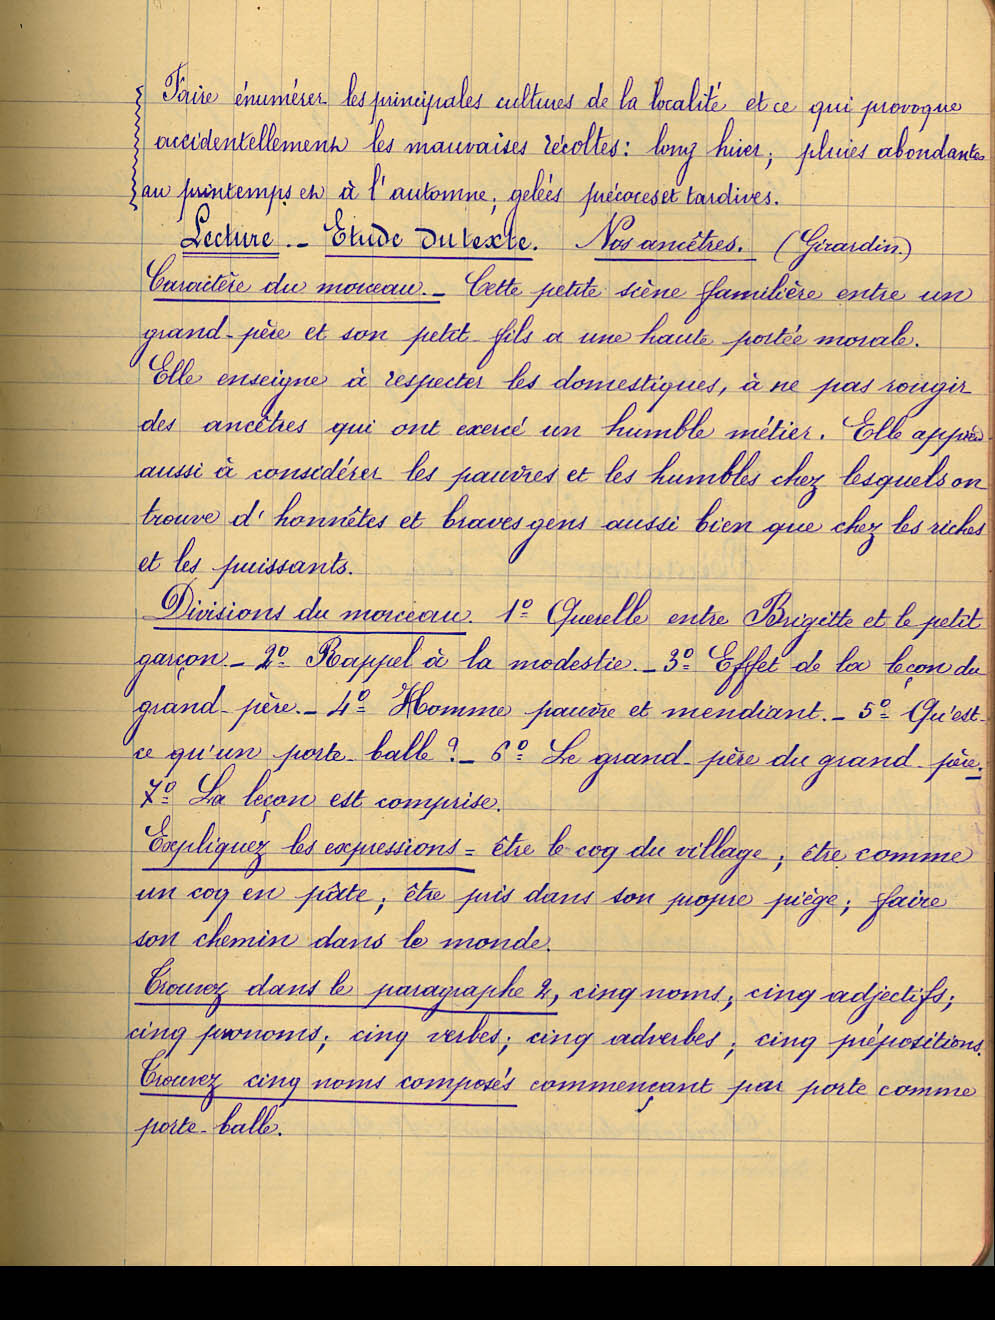 Faire énumérer les principales cultures de la localité et ce qui provoque
accidentellement les mauvaises récoltes : long hiver ; pluies abondantes
au printemps et à l'automne ; gelées précoces et tardives.
Lecture. - Etude du texte. Nos ancêtres. (Girardin.)
Caractère du morceau. - Cette petite scène familière entre un
grand-père et son petit-fils a une haute portée morale.
Elle enseigne à respecter les domestiques, à ne pas rougir
des ancêtres qui ont exercé un humble métier. Elle apprend
aussi à considérer les pauvres et les humbles chez lesquels on
trouve d'honnêtes et braves gens aussi bien que chez les riches
et les puissants.
Divisions du morceau. 1º Querelle entre Brigitte et le petit
garçon. - 2º Rappel à la modestie. - 3º Effet de la leçon du
grand-père. - 4º Homme pauvre et mendiant. - 5º Qu'est-
ce qu'un porte-balle ? - 6º Le grand-père du grand-père.
7º La leçon est comprise.
Expliquez les expressions = être le coq du village ; être comme
un coq en pâte ; être pris dans son propre piège ; faire
son chemin dans le monde.
Trouvez dans le paragraphe 2, cinq noms ; cinq adjectifs ;
cinq pronoms ; cinq verbes ; cinq adverbes ; cinq prépositions.
Trouvez cinq noms composés commençant par porte comme
porte-balle.